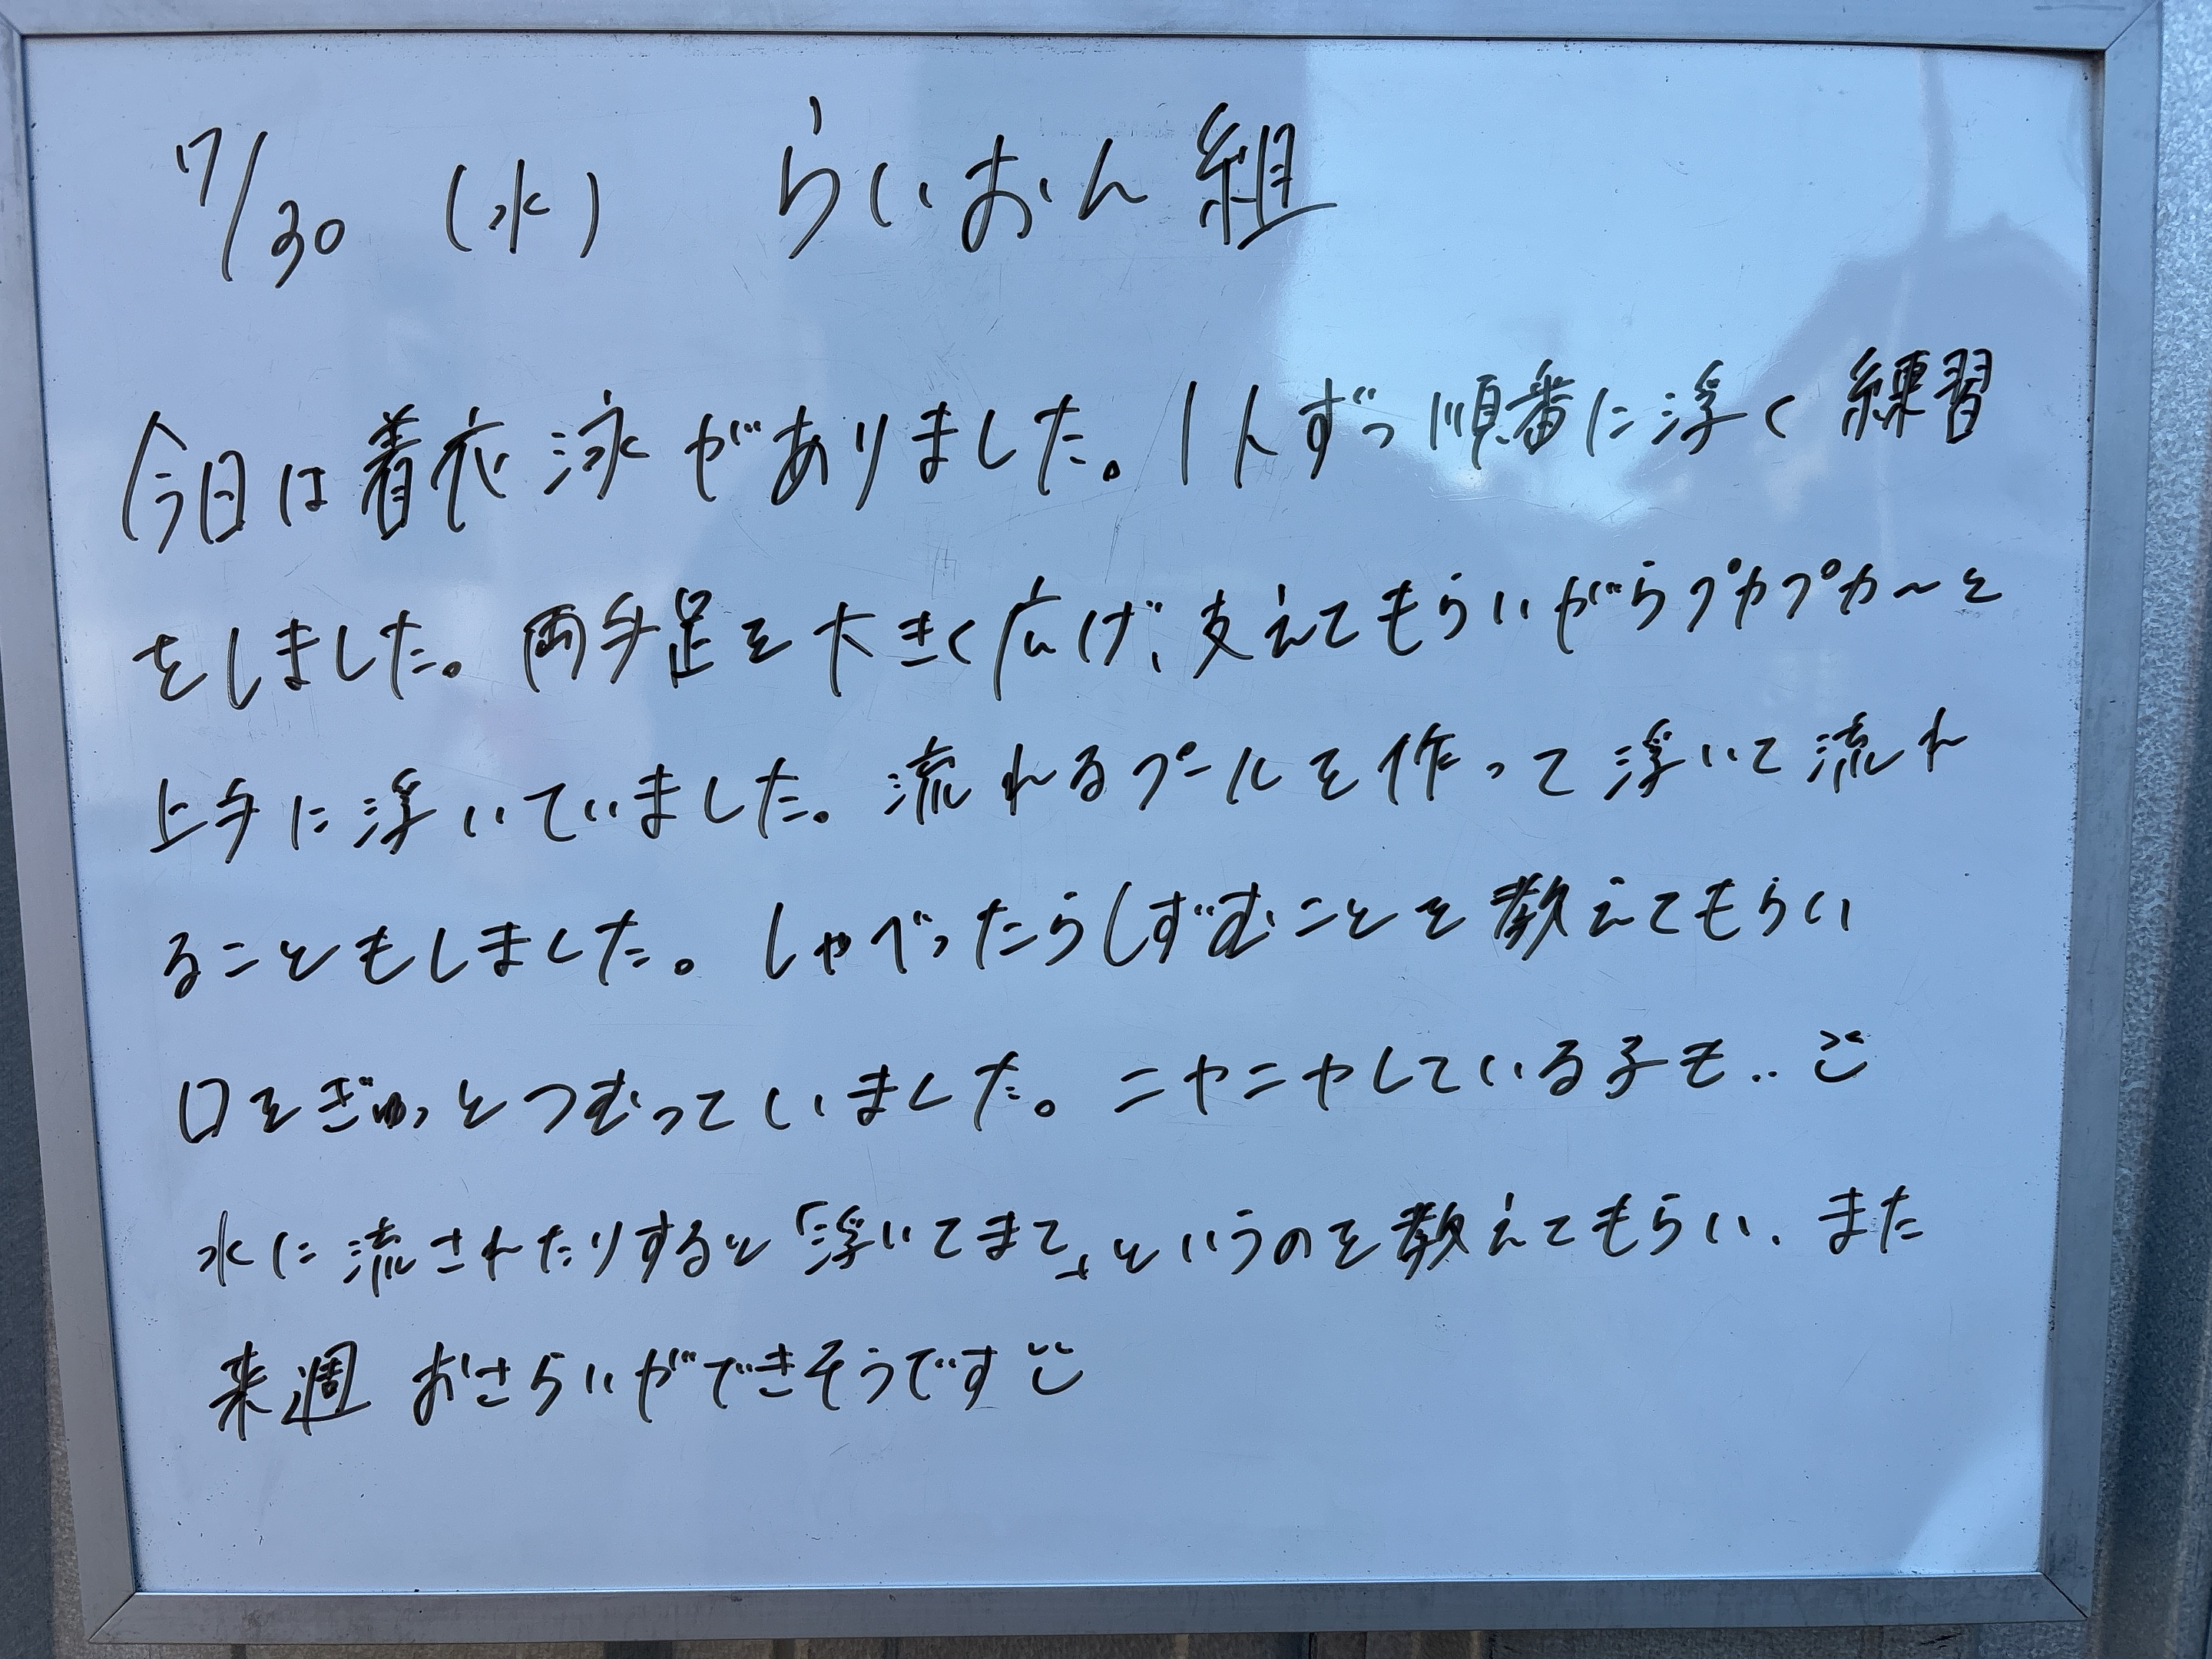 7/30 (水) らいおん組
今日は着衣泳がありました。1人ずつ順番に浮く練習
をしました。両手足を大きく広げ、支えてもらいがらプカプカ〜と
上手に浮いていました。流れるプールを作って浮いて流れ
ることもしました。しゃべったらしずむことを教えてもらい
口をぎゅっとつむっていました。ニヤニヤしている子も..
水に流されたりすると「浮いてまて」というのを教えてもらい、また
来週おさらいができそうです